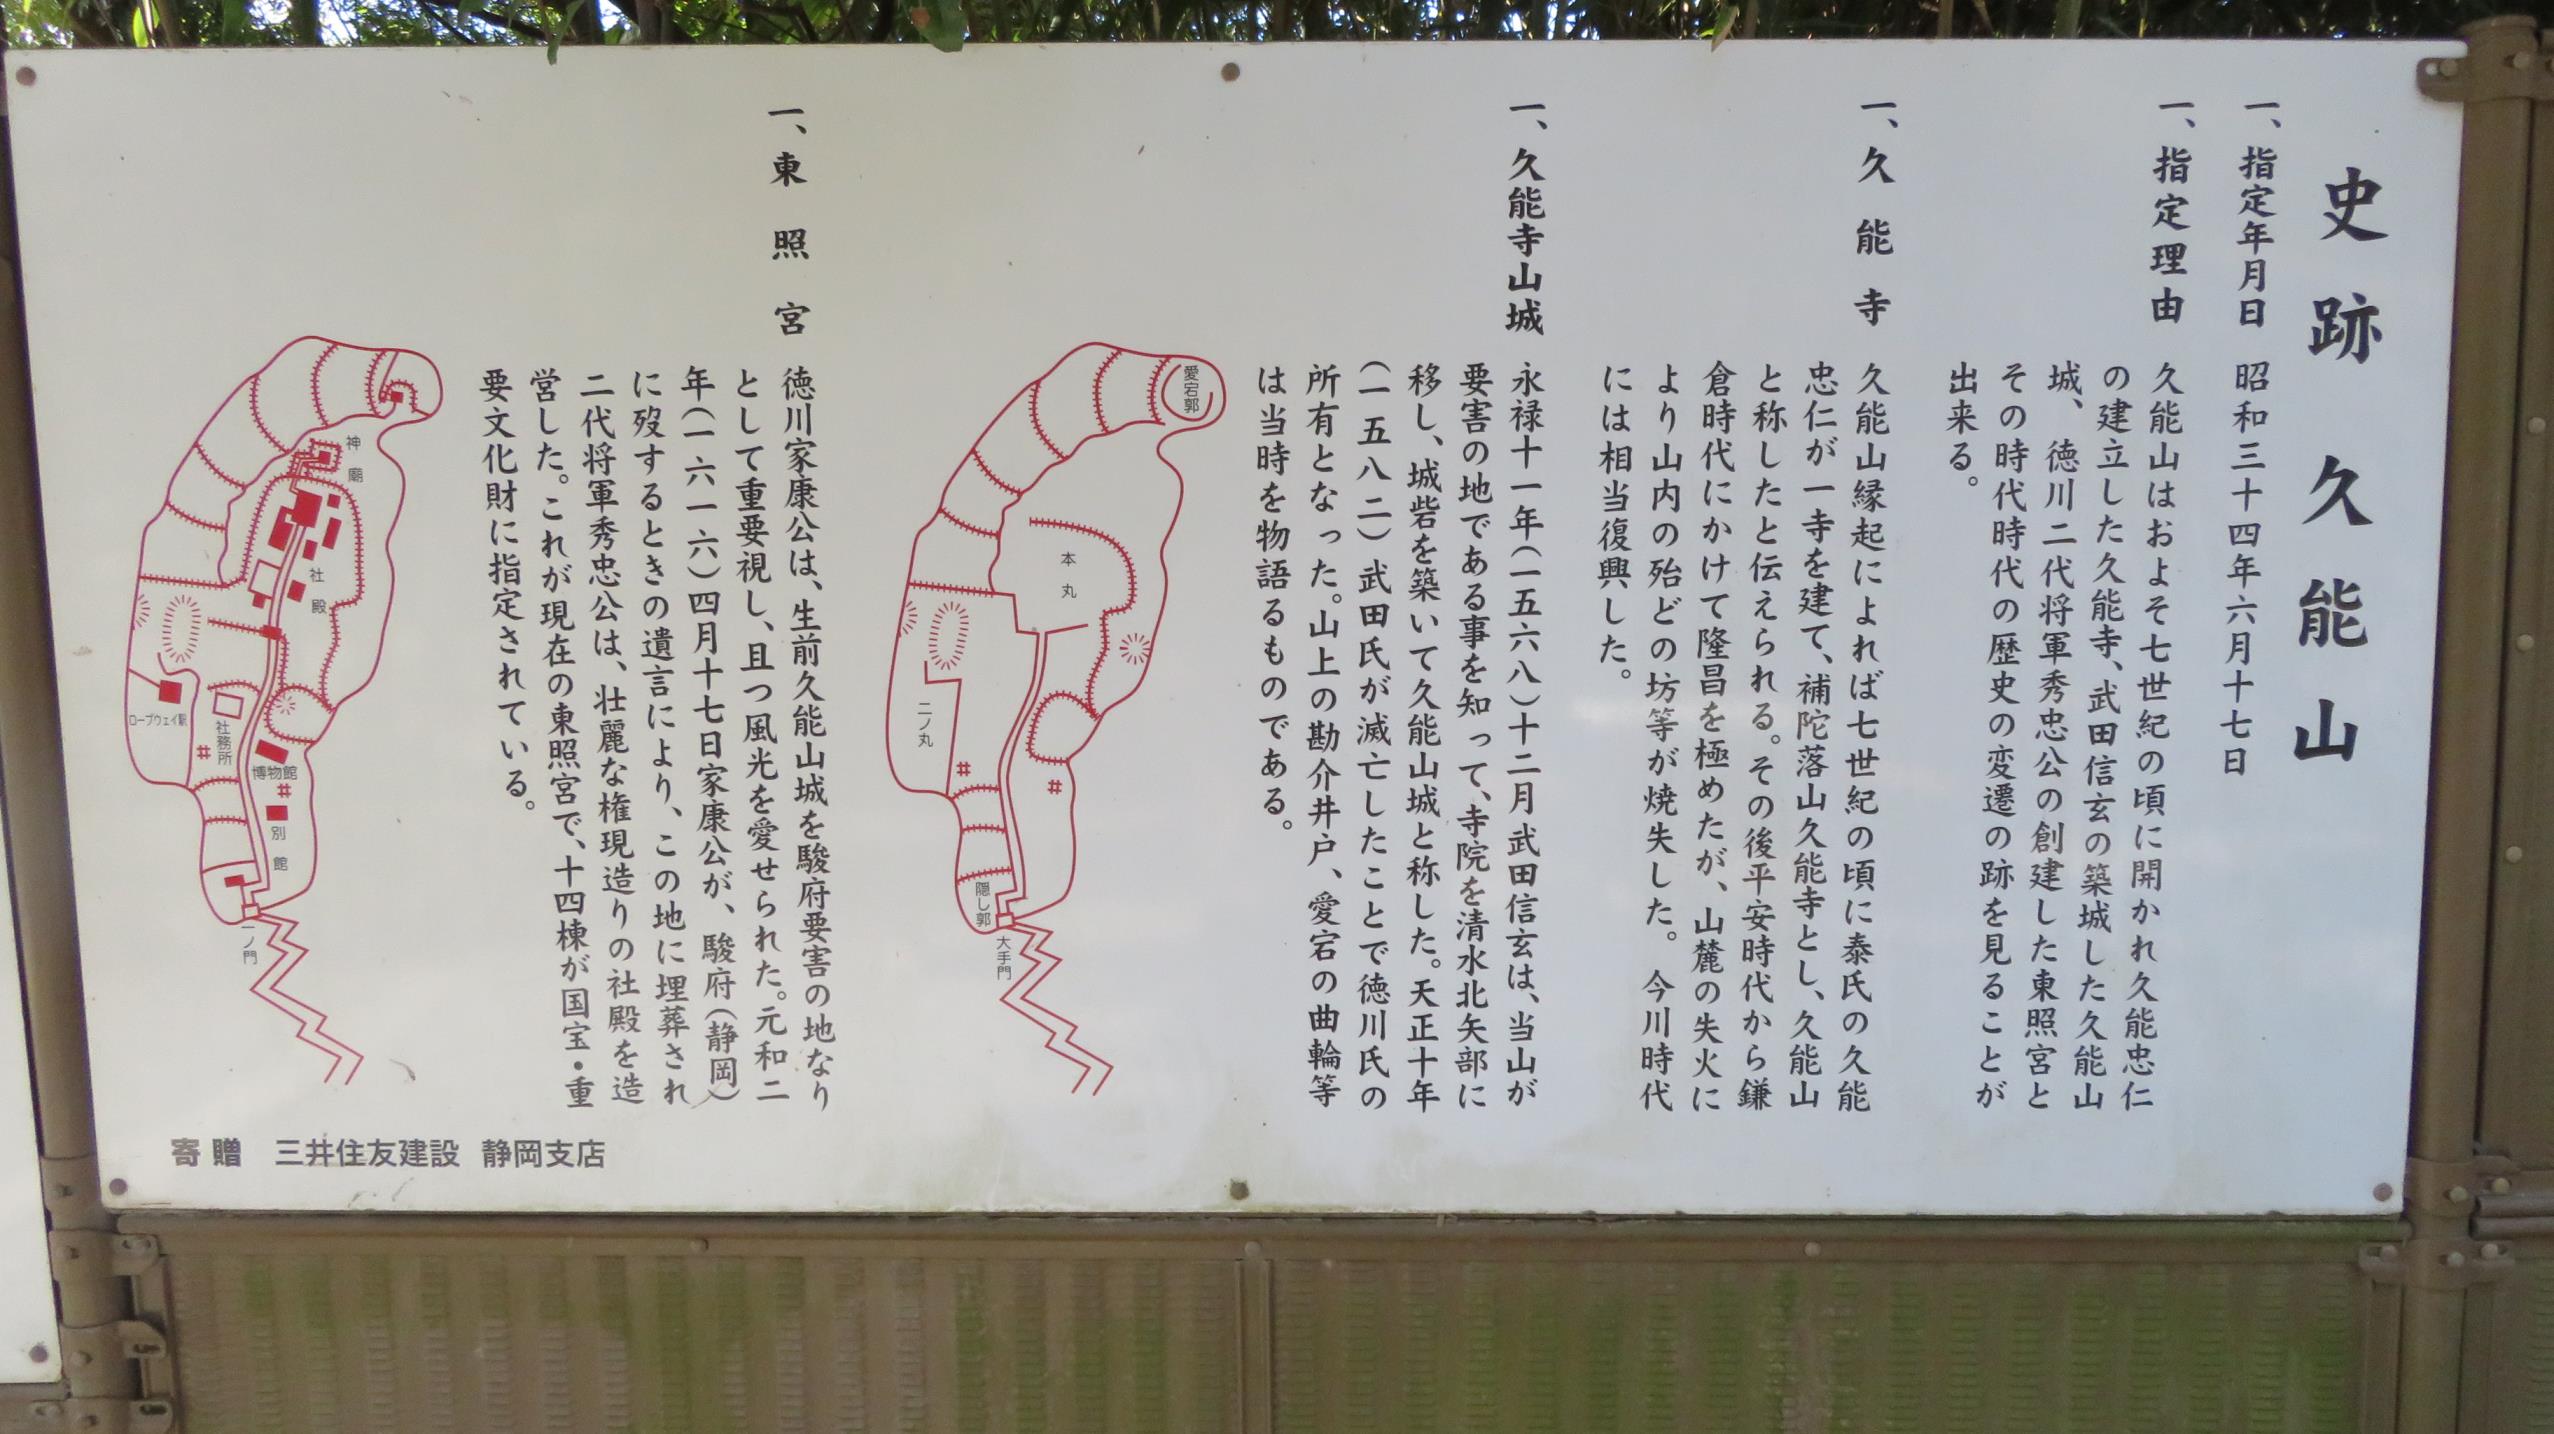 史跡 久能山
一、指定年月日 昭和三十四年六月十七日
一、指定理由 久能山はおよそ七世紀の頃に開かれ久能忠仁
の建立した久能寺、武田信玄の築城した久能山
城、徳川二代将軍秀忠公の創建した東照宮と
その時代時代の歴史の変遷の跡を見ることが
出来る。
一、久能寺 久能山縁起によれば七世紀の頃に泰氏の久能
忠仁が一寺を建て、補陀落山久能寺とし、久能山
と称したと伝えられる。その後平安時代から鎌
倉時代にかけて隆昌を極めたが、山麓の失火に
より山内の殆どの坊等が焼失した。今川時代
には相当復興した。
一、久能寺山城 永禄十一年(一五六八)十二月武田信玄は、当山が
要害の地である事を知って、寺院を清水北矢部に
移し、城砦を築いて久能山城と称した。天正十年
(一五八二)武田氏が滅亡したことで徳川氏の
所有となった。山上の勘介井戸、愛宕の曲輪等
は当時を物語るものである。
愛宕郭
本丸
二ノ丸
隠し郭
大手門
一、東照宮 徳川家康公は、生前久能山城を駿府要害の地なり
として重要視し、且つ風光を愛せられた。元和二
年(一六一六)四月十七日家康公が、駿府(静岡)
に歿するときの遺言により、この地に埋葬され
二代将軍秀忠公は、壮麗な権現造りの社殿を造
営した。これが現在の東照宮で、十四棟が国宝・重
要文化財に指定されている。
神廟
社殿
ロープウェイ駅
社務所
博物館
別館
一ノ門
寄贈 三井住友建設 静岡支店